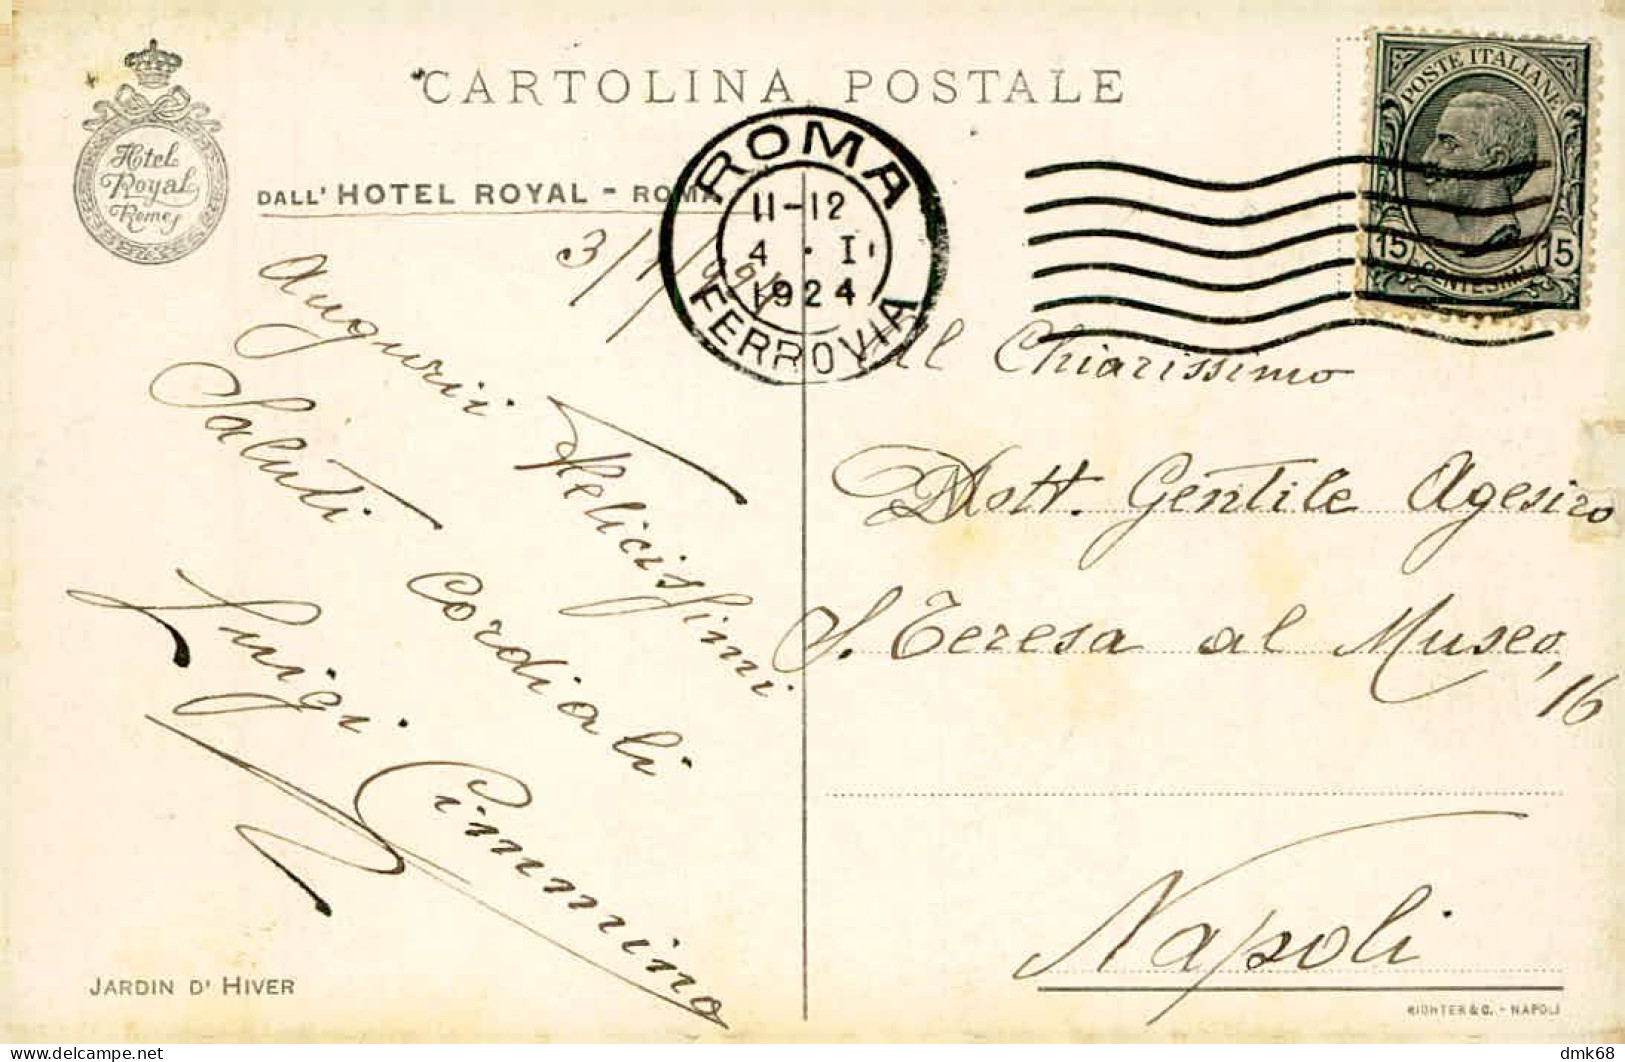 CARTOLINA POSTALE
Hotel
Royal
Rome
DALL' HOTEL ROYAL - ROMA
ROMA
11-12
4 · I
1924
FERROVIA
POSTE ITALIANE
15 CENTESIMI 15
3/1/924
Augurii Felicissimi
Saluti Cordiali
Luigi Cimmino
Al Chiarissimo
Dott. Gentile Agesiro
S. Teresa al Museo, 16
Napoli
JARDIN D' HIVER
RICHTER & C. - NAPOLI
dmk68